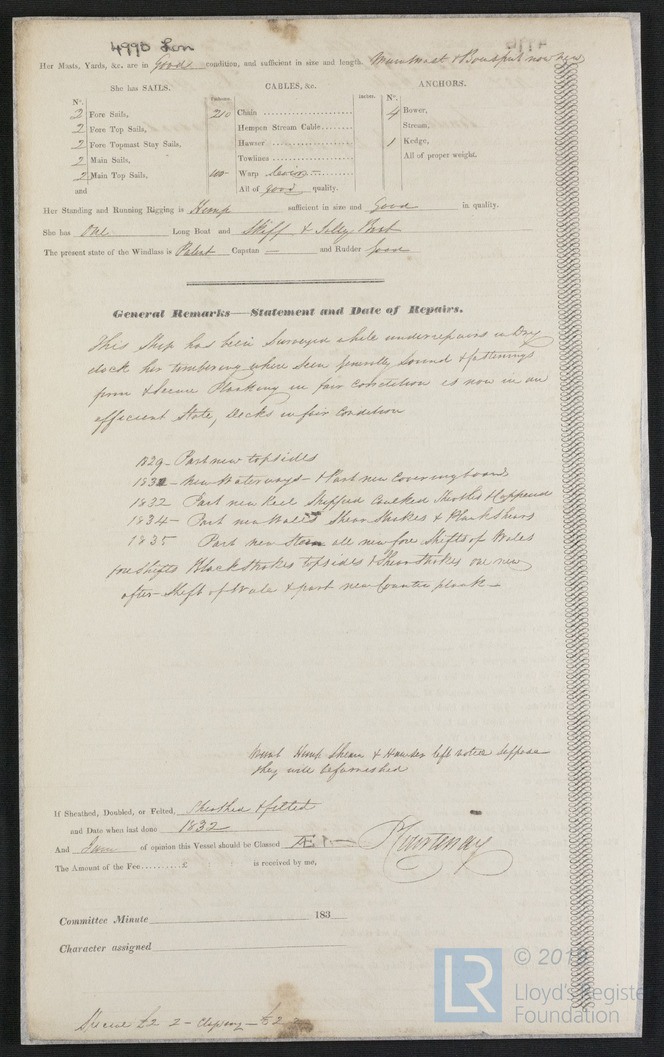 4990 Lon
Her Masts, Yards, &c. are in Good condition, and sufficient in size and length. Mainmast & Bowsprit now New
She has SAILS.
CABLES, &c.
ANCHORS.
N°. Fathoms. Inches. N°.
2 Fore Sails, 210 Chain 4 Bower,
2 Fore Top Sails, Hempen Stream Cable Stream,
2 Fore Topmast Stay Sails, Hawser 1 Kedge,
2 Main Sails, Towlines All of proper weight.
2 Main Top Sails, 100 Warp
and All of good quality.
Her Standing and Running Rigging is Hemp sufficient in size and Good in quality.
She has one Long Boat and Skiff & Jolly Boat
The present state of the Windlass is Patent Capstan — and Rudder good
General Remarks—Statement and Date of Repairs.
This Ship has been Surveyed while under repairs in Dry
dock her timbering where seen generally Sound & fastenings
firm & secure Planking in fair condition is now in an
efficient State, Decks in fair Condition
1829 - Part new topsides
183 - New Waterways - & Part new Coveringboards
1832 Part new Keel Stripped Caulked & Coppered
1834 - Part new Wales Shear Strakes & Planksheers
1835 Part New Stem all new fore Shifts of Wales
fore Shifts Blackstrakes topsides & Shearstrakes one new
after Shift of Wales & part new Counter plank -
Hemp Stream & Hawser left suppose
they will be furnished
If Sheathed, Doubled, or Felted, Sheathed & felted
and Date when last done 1832
And I am of opinion this Vessel should be Classed Æ 1 -
Courtenay
The Amount of the Fee £ is received by me,
Committee Minute 183
Character assigned
Special £2 2 - - £2 2
LR
© 201
Lloyd's Register
Foundation